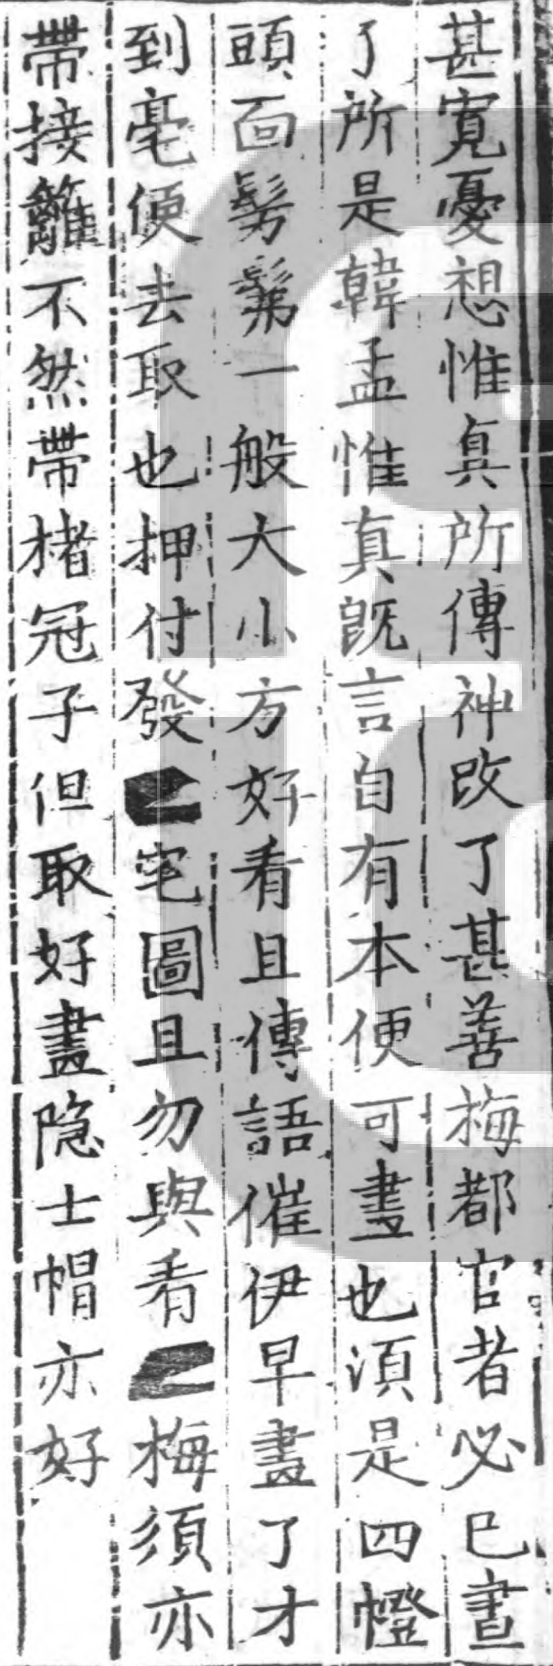 甚寬憂想惟真所傳神改了甚善梅都官者必已畫
了所是韓孟惟真既言自有本便可畫也須是四㡠
頭面髣髴一般大小方好看且傳語催伊早畫了才
到亳便去取也押付發宅圖且勿與看梅須亦
帶接籬不然帶楮冠子但取好畫隐士帽亦好